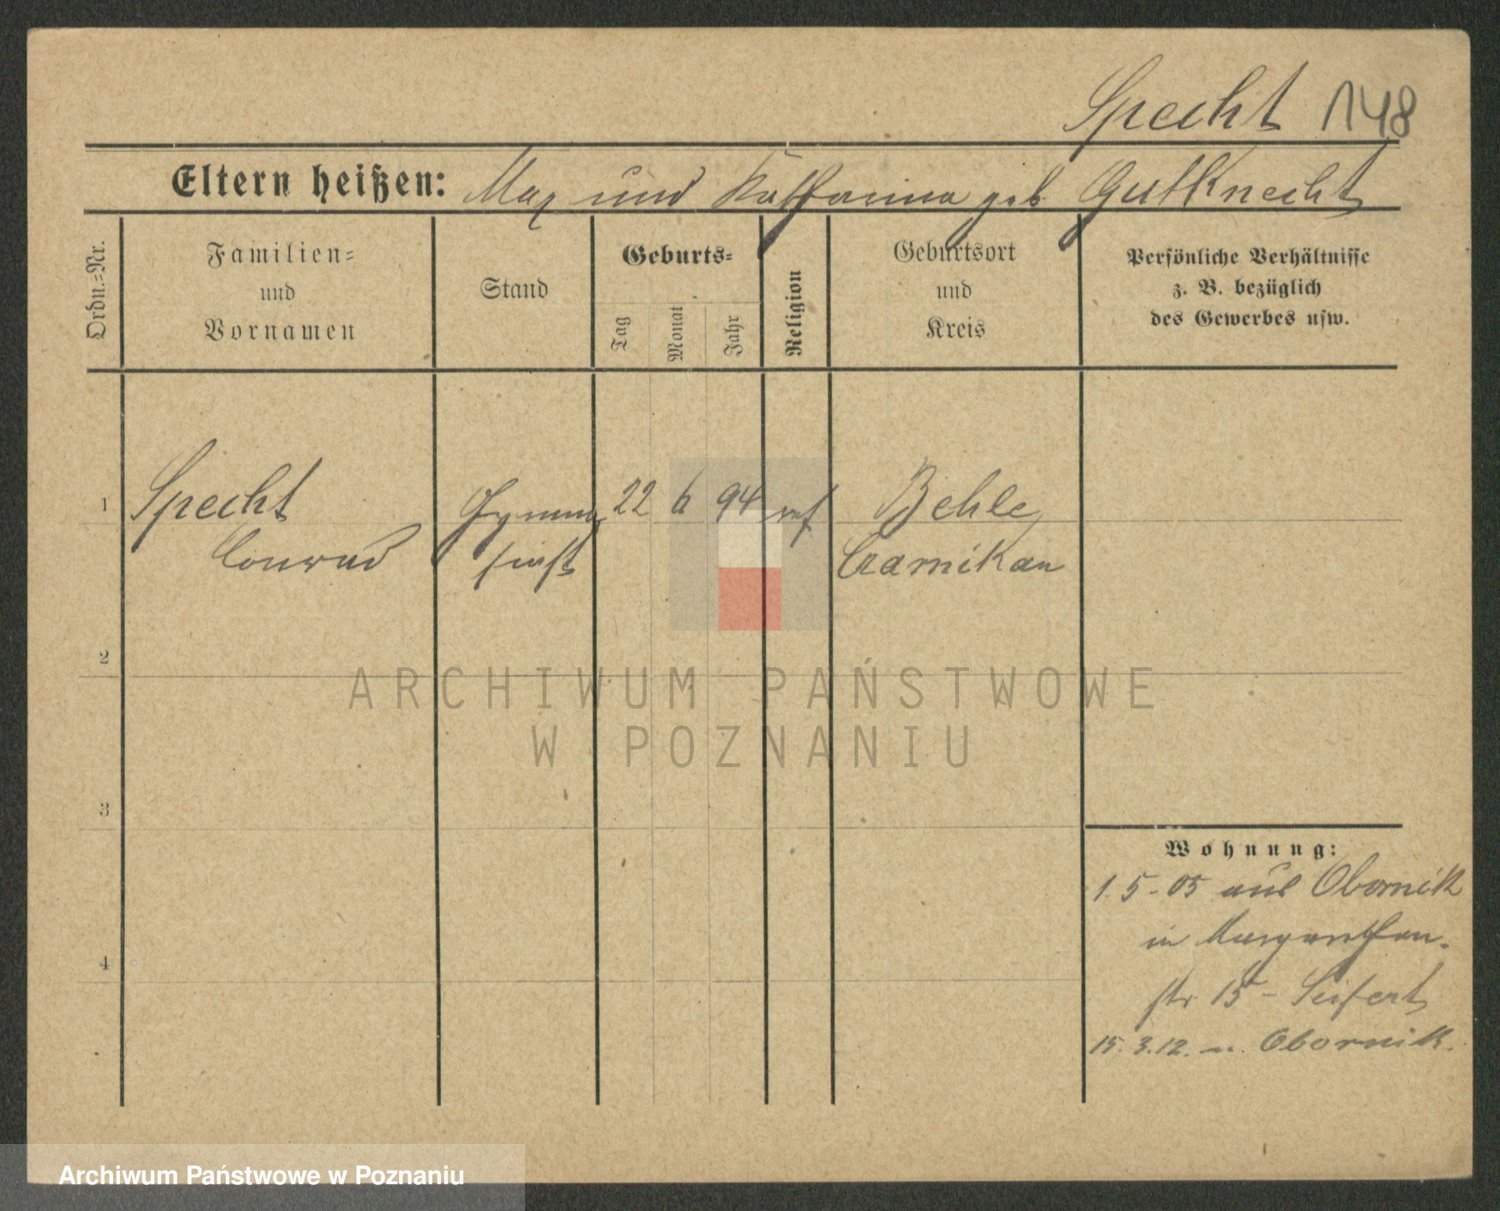 Specht 148
Eltern heißen: Max und Katharina geb Gutknecht
Ordn.=Nr.
Familien=
und
Vornamen
Stand
Geburts=
Tag
Monat
Jahr
Religion
Geburtsort
und
Kreis
Persönliche Verhältnisse
z. B. bezüglich
des Gewerbes usw.
1 Specht Gymna 22 6 94 ref Behle
Conrad siast Czarnikau
2
3
4
Wohnung:
1.5-05 aus Obornik
in Margarethen-
str 15 - Seifert
15.3.12. n. Obornik.
ARCHIWUM PAŃSTWOWE
W POZNANIU
Archiwum Państwowe w Poznaniu